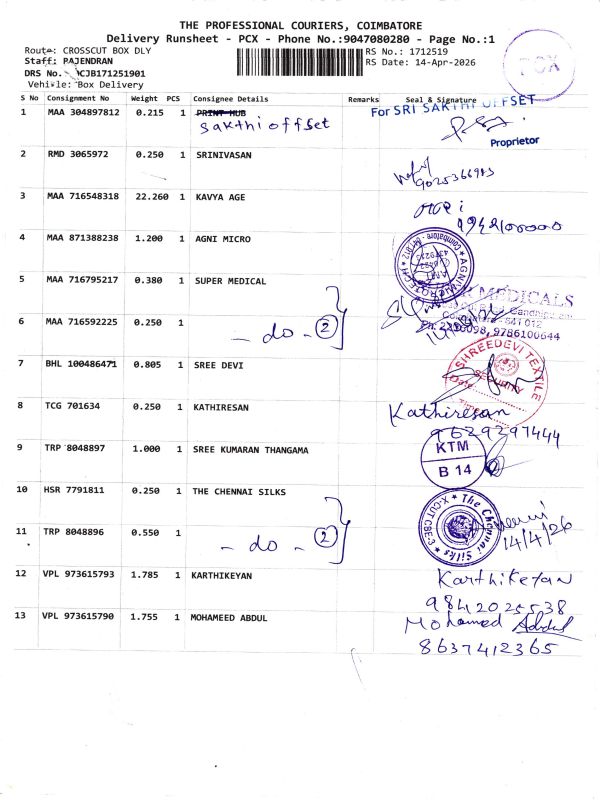 THE PROFESSIONAL COURIERS, COIMBATORE
Delivery Runsheet - PCX - Phone No.:9047080280 - Page No.:1
Route: CROSSCUT BOX DLY
RS No.: 1712519
Staff: RAJENDRAN
RS Date: 14-Apr-2026
DRS No. CJB171251901
Vehicle: Box Delivery
PCX
S No Consignment No Weight PCS Consignee Details Remarks Seal & Signature
For SRI SAKTHI OFFSET
1 MAA 304897812 0.215 1 PRINT HUB
Sakthi offset
Proprietor
2 RMD 3065972 0.250 1 SRINIVASAN
9025366983
3 MAA 716548318 22.260 1 KAVYA AGE
4 MAA 871388238 1.200 1 AGNI MICRO
5 MAA 716795217 0.380 1 SUPER MEDICAL
MEDICALS
6 MAA 716592225 0.250 1
- do - 2
Coimbatore - 641 012
9786100644
7 BHL 100486471 0.805 1 SREE DEVI
SHREEDEVI TEXTILE
SECURITY
Date
Time
8 TCG 701634 0.250 1 KATHIRESAN
Kathiresan
9629297444
9 TRP 8048897 1.000 1 SREE KUMARAN THANGAMA
KTM
B 14
10 HSR 7791811 0.250 1 THE CHENNAI SILKS
The Chennai Silks
X-CUT CBE
11 TRP 8048896 0.550 1
- do - 2
14/4/26
12 VPL 973615793 1.785 1 KARTHIKEYAN
Karthikeyan
9842025538
13 VPL 973615790 1.755 1 MOHAMEED ABDUL
Mohamed Abdul
8637412365